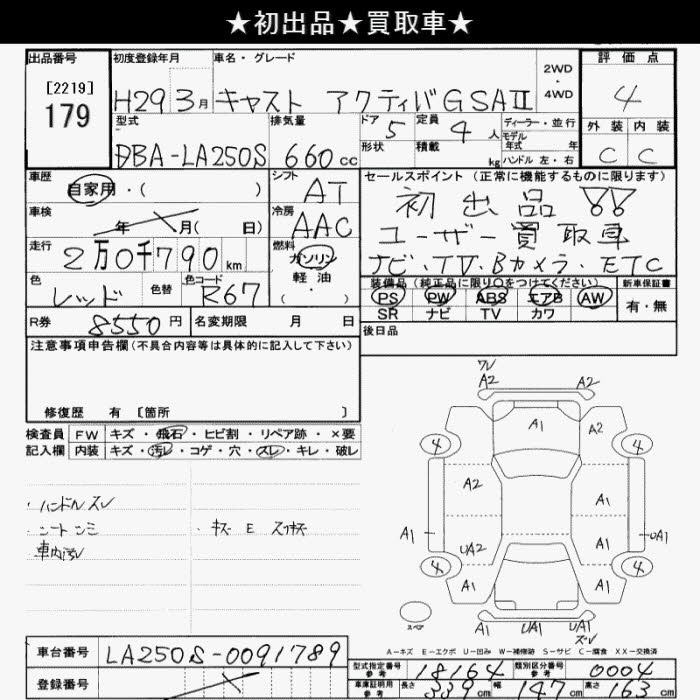 ★初出品★買取車★
出品番号
[2219]
179
初度登録年月
H29 3月
車名・グレード
キャスト アクティバGSAⅡ
2WD
・
4WD
評価点
4
型式
DBA-LA250S
排気量
660cc
ドア 5
定員 4人
形状
積載 kg
ディーラー・並行
モデル
年式 年
ハンドル 左・右
外装 内装
C C
車歴
自家用・( )
シフト
AT
セールスポイント(正常に機能するものに限ります)
初出品!!
ユーザー買取車
ナビ・TV・Bカメラ・ETC
車検
年 月( 日)
冷房
AAC
走行
2万0千790km
燃料
ガソリン
・
軽油
( )
色
レッド
色替
色コード
R67
装備品(純正品に限り○をつけてください)
PS PW ABS エアB AW
SR ナビ TV カワ
新車保証書
有・無
R券 8550円
名変期限 月 日
後日品
注意事項申告欄(不具合内容等は具体的に記入して下さい)
修復歴 有 [箇所 ]
検査員 FW キズ・飛石・ヒビ割・リペア跡・×要
記入欄 内装 キズ・汚レ・コゲ・穴・スレ・キレ・破レ
・ハンドルスレ
・シートシミ
・キズ E スリキズ
車内汚レ
ワレ
A2 A2
A1 A2
4 4
A2 A1
A1 UA1
UA2 A1
4 4
A1 A1
スペア
A1 UA1 UA1
ズレ
A-キズ E-エクボ U-凹み W-補修跡 S-サビ C-腐食 XX-交換済
車台番号 LA250S-0091789
登録番号
型式指定番号
参考
18164
類別区分番号
参考
0004
車庫証明用
参考
長さ 339cm 幅 147cm 高さ 163cm